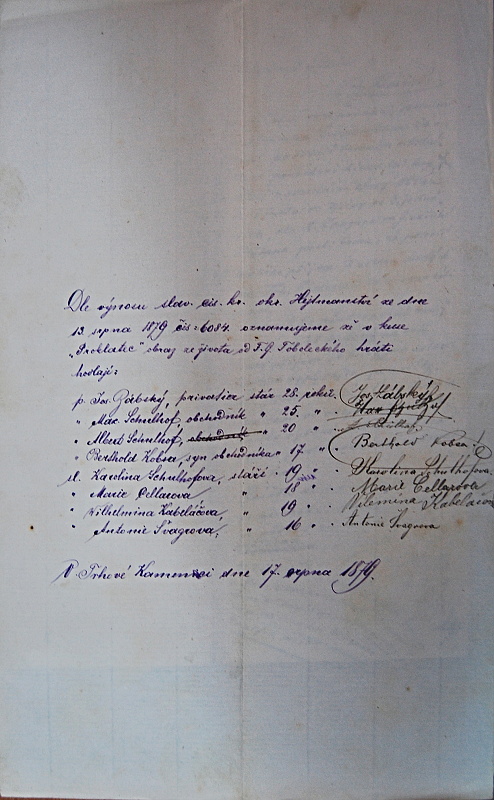 Dle výnosu slav. cis. kr. okr. Hejtmanství ze dne
13 srpna 1879 čís: 6084. oznamujeme že v kuse
obraz ze života od J. G. hráti
hodlají:
p. Jos. Zábský, privatier stár 28 roků. Jos. Zábský
" Max Schulhof, obchodník " 25 " .
" Albert Schulhof, obchodník " 20 " .
" Berthold Kobsa, syn obchodníka " 17 " . Berthold Kobsa
sl. Karolina Schulhofova, stáří . 19 " . Karolina Schulhofova
" Marie Cellarova " 18 " . Marie Cellarova
" Wilhelmina Kabeláčova, " 19 " . Vilemina Kabelačova
" Antonie Švagrova, " 16 " . Antonie Svagrova
V. Trhové Kamenici dne 17. srpna 1879.